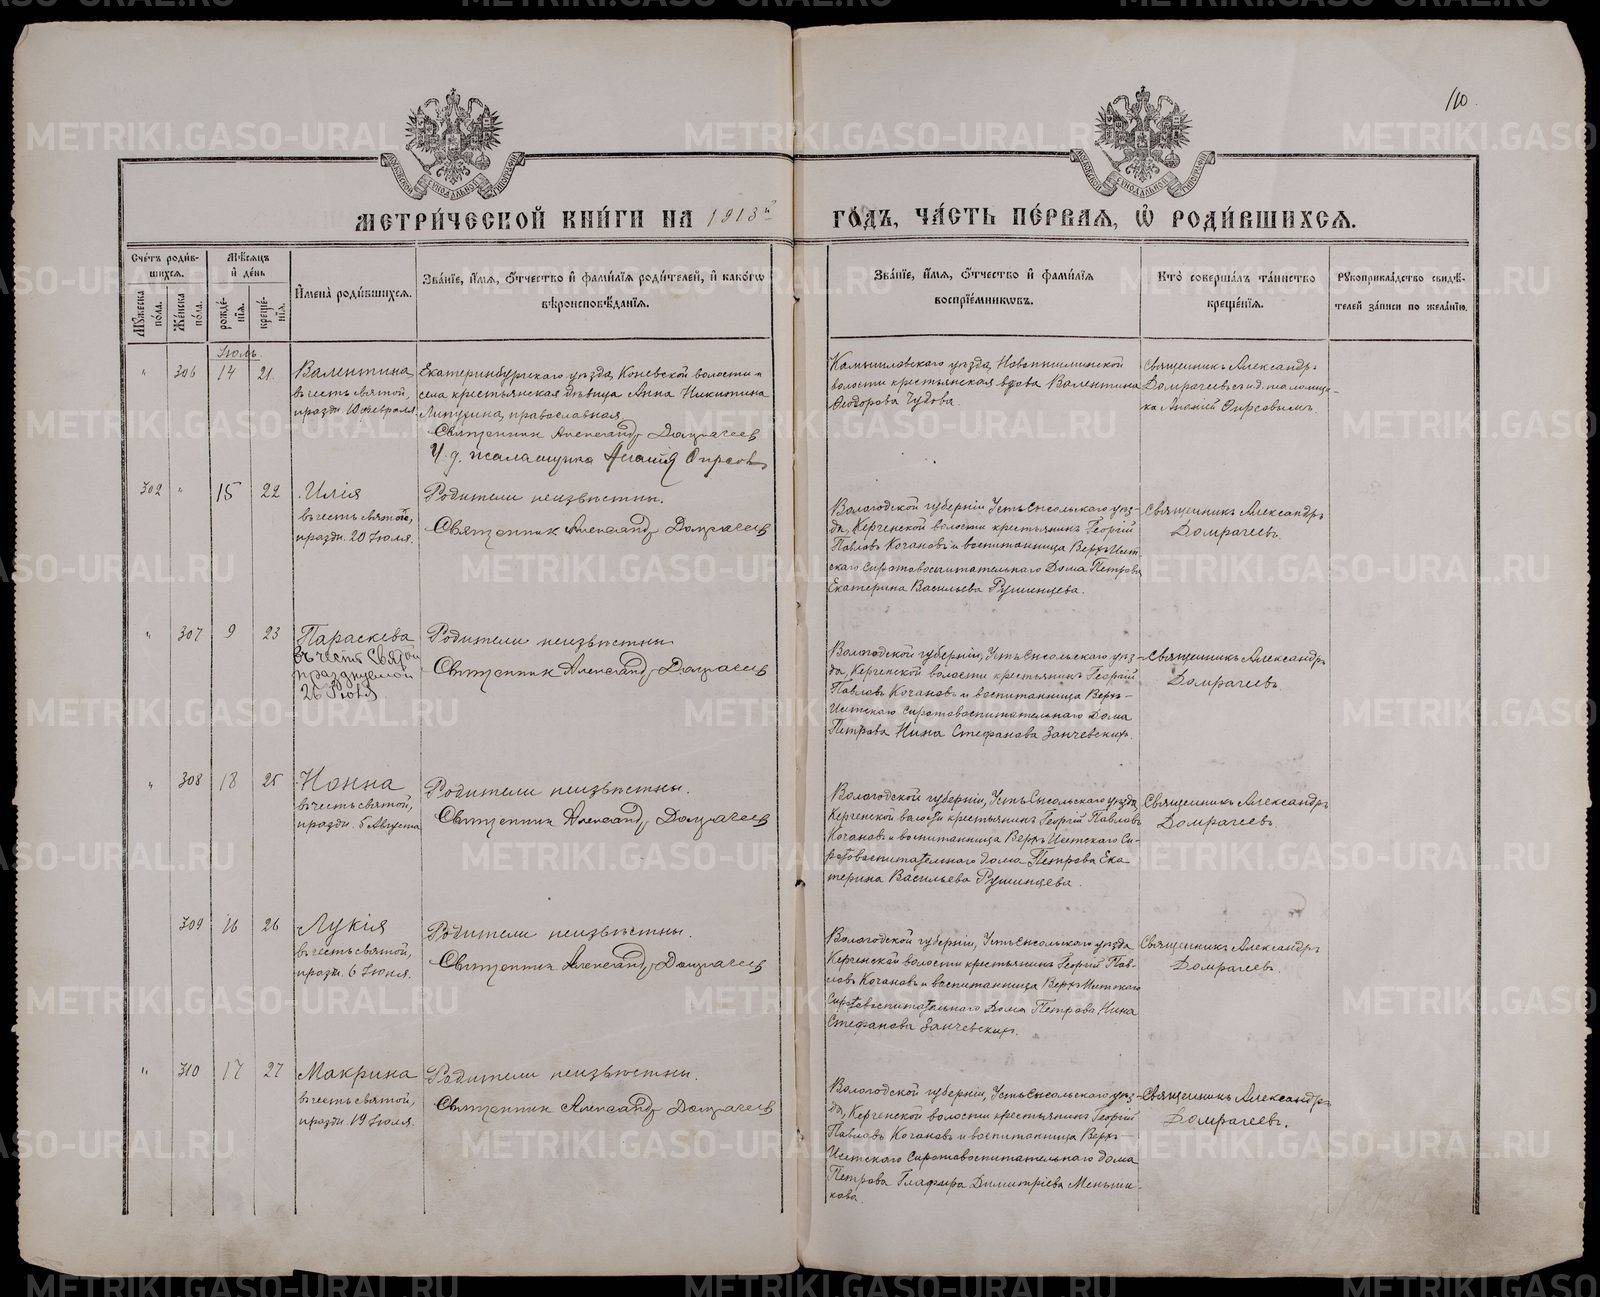 110.
МЕТРИ́ЧЕСКОЙ КНИ́ГИ НА 1913й ГО́ДЪ, ЧА́СТЬ ПЕ́РВАЯ, Ѡ҆ РОДИ́ВШИХСЯ.
Сче́тъ роди́в-
шихся.
Мꙋжеска по́ла.
Же́нска по́ла.
Мѣ́сяцъ
и҆ де́нь
рожде́-
нїѧ.
креще́-
нїѧ.
И҆мена̀ роди́вшихся.
Зва́нїе, и҆́мѧ, ѻ҆́тчество и҆ фами́лїѧ роди́телей, и҆ како́гѡ
вѣроисповѣ́данїѧ.
Зва́нїе, и҆́мѧ, ѻ҆́тчество и҆ фами́лїѧ
воспрїе́мникѡвъ.
Кто̀ соверша́лъ та́инство
креще́нїѧ.
Рꙋкоприкла́дство свидѣ́-
телей за́писи по жела́нїю.
Іюль.
" 306 14 21.
Валентина
въ честь святой,
праздн. 10 февраля.
Екатеринбургскаго уѣзда, Коневской волости и
села крестьянская дѣвица Анна Никитина
Липухина, православная
Священник Александр Домрачеев
И. д. псаломщика Анатій Фирсовъ
Камышловскаго уѣзда, Новопышминской
волости крестьянская вдова Валентина
Ѳеодорова Чудова.
Священникъ Александръ
Домрачеевъ съ и.д. псаломщи-
ка Фирсовымъ.
302 " 15 22
Илія
въ честь святого,
праздн. 20 Іюля.
Родители неизвѣстны.
Священник Александр Домрачеев
Вологодской губерніи, Усть Сысольскаго уѣз-
да, Керчемской волости крестьянинъ Георгій
Павловъ Качановъ и воспитанница Верхъ Исет-
скаго Сиротовоспитательнаго Дома Петрова
Екатерина Васильева Рушинцева.
Священникъ Александръ
Домрачеевъ.
" 307 9 23
Параскева
въ честь Святой
празднуемой
26 Іюля
Родители неизвѣстны
Священник Александр Домрачеев
Вологодской губерніи, Усть Сысольскаго уѣз-
да, Керчемской волости крестьянинъ Георгій
Павловъ Качановъ и воспитанница Верхъ-
Исетскаго Сиротовоспитательнаго Дома
Петрова Нина Стефанова Занчевскихъ.
Священникъ Александръ
Домрачеевъ.
" 308 18 25
Нонна
въ честь святой,
праздн. 5 Августа
Родители неизвѣстны.
Священник Александр Домрачеев
Вологодской губерніи, Усть Сысольскаго уѣзда,
Керчемской волости крестьянинъ Георгій Павловъ
Качановъ и воспитанница Верхъ Исетскаго Си-
ротовоспитательнаго дома Петрова Ека
терина Васильева Рушинцева.
Священникъ Александръ
Домрачеевъ.
309 16 26
Лукія
въ честь святой,
праздн. 6 Іюля.
Родители неизвѣстны.
Священник Александр Домрачеев
Вологодской губерніи, Усть Сысольскаго уѣзда
Керчемской волости крестьянинъ Георгій Пав-
ловъ Качановъ и воспитанница Верхъ Исетскаго
Сиротовоспитательнаго Дома Петрова Нина
Стефанова Занчевскихъ.
Священникъ Александръ
Домрачеевъ.
" 310 17 27
Макрина
въ честь святой,
праздн. 19 Іюля.
Родители неизвѣстны.
Священник Александр Домрачеев
Вологодской губерніи, Усть Сысольскаго уѣз-
да, Керчемской волости крестьянинъ Георгій
Павловъ Качановъ и воспитанница Верхъ-
Исетскаго Сиротовоспитательнаго дома
Петрова Глафира Димитріева Меньши-
кова.
Священникъ Александръ
Домрачеевъ.
METRIKI.GASO-URAL.RU